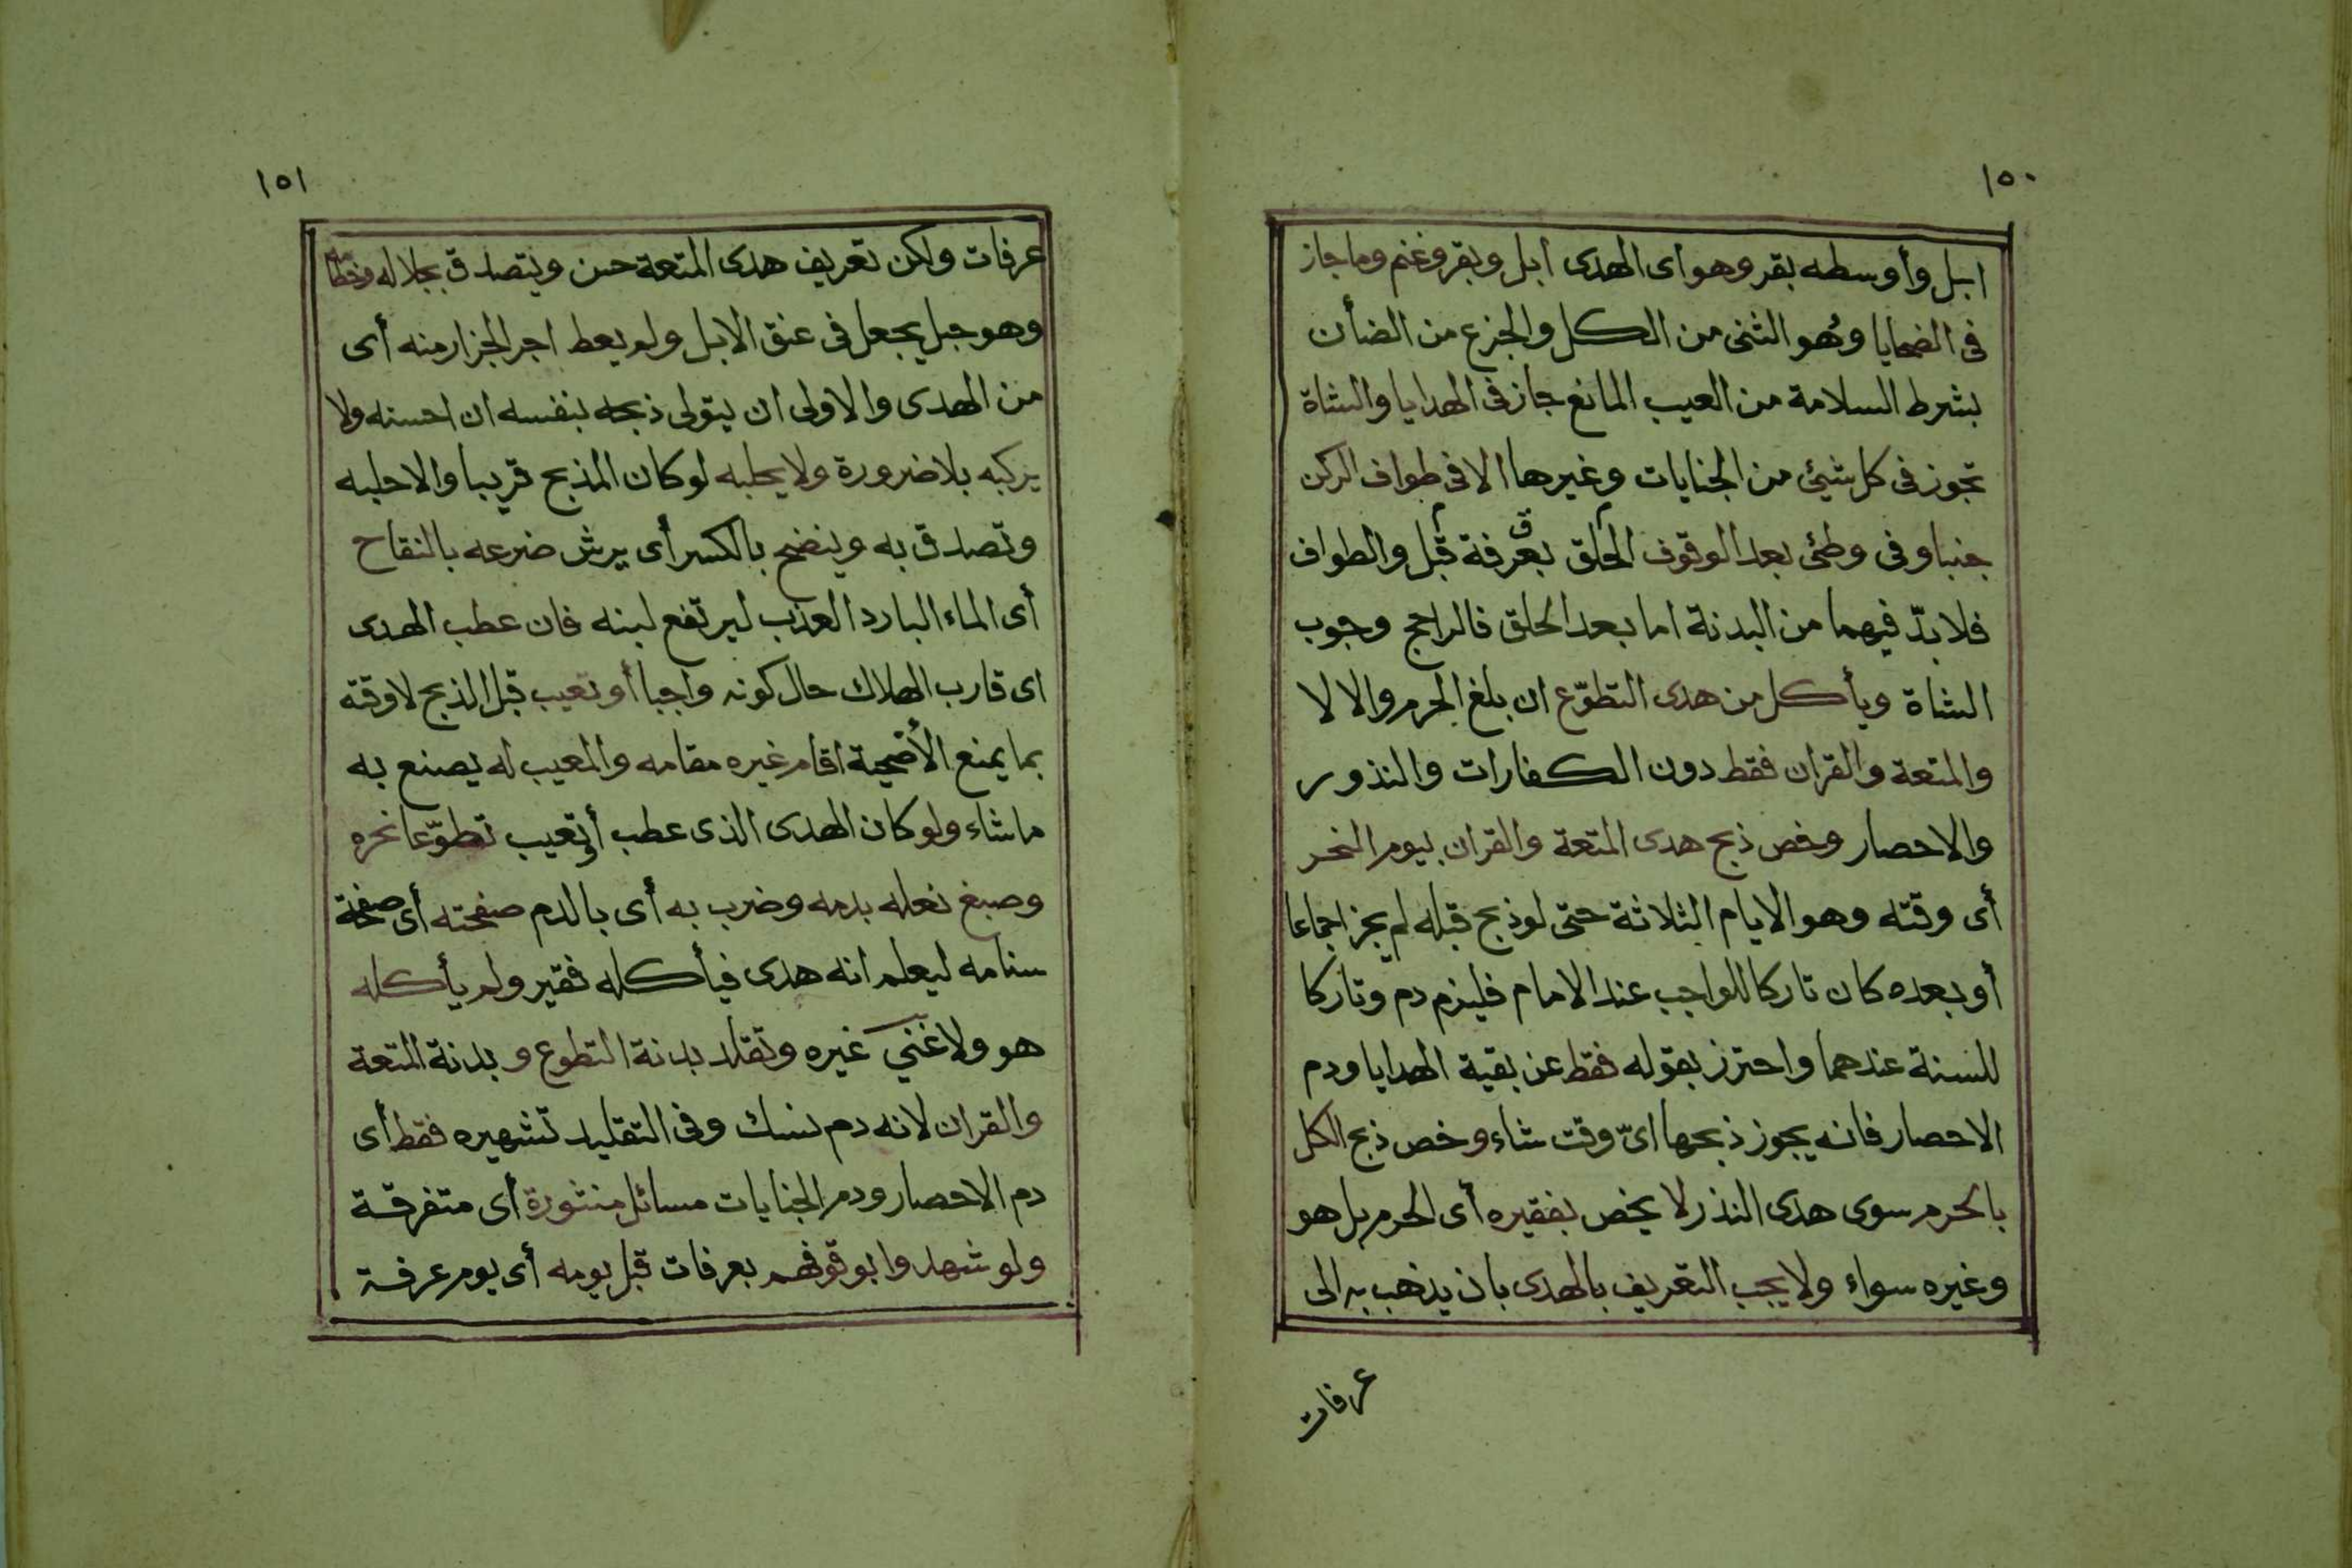 ١٥٠
ابل وأوسطه بقر وهو أى الهدى ابل وبقر وغنم وما جاز
فى الضحايا وهو الثنى من الكل والجزع من الضأن
بشرط السلامة من العيب المانع جاز فى الهدايا والشاة
تجوز فى كل شيئ من الجنايات وغيرها الا فى طواف الركن
جنبا وفى وطئ بعد الوقوف الحلق بعرفة قبل والطواف
فلا بدّ فيهما من البدنة اما بعد الحلق فالراجح وجوب
الشاة ويأكل من هدى التطوّع ان بلغ الحرم والا لا
والمتعة والقران فقط دون الكفارات والنذور
والاحصار وخص ذبح هدى المتعة والقران بيوم النحر
أى وقته وهو الايام الثلاثة حتى لو ذبح قبله لم يجز اجماعا
أو بعده كان تاركا للواجب عند الامام فليزم دم وتاركا
للسنة عندهما واحترز بقوله فقط عن بقية الهدايا ودم
الاحصار فانه يجوز ذبحها اىّ وقت شاء وخص ذبح الكل
بالحرم سوى هدى النذر لا يخص بفقيره أى الحرم بل هو
وغيره سواء ولا يجب التعريف بالهدى بان يذهب به الى
عرفات
١٥١
عرفات ولكن تعريف هدى المتعة حسن ويتصدق بجلاله وخطامه
وهو حبل يجعل فى عنق الابل ولم يعط اجر الجزار منه أى
من الهدى والاولى ان يتولى ذبحه بنفسه ان احسنه ولا
يركبه بلا ضرورة ولا يحلبه لو كان المذبح قريبا والا حلبه
وتصدق به وينضح بالكسر أى يرش ضرعه بالنقاح
أى الماء البارد العذب ليرتفع لبنه فان عطب الهدى
اى قارب الهلاك حال كونه واجبا أو تعيب قبل الذبح لا وقته
بما يمنع الأضحية اقام غيره مقامه والمعيب له يصنع به
ما شاء ولو كان الهدى الذى عطب أو تعيب تطوّعا نحره
وصبغ نعله بدمه وضرب به أى بالدم صفحته أى صفحة
سنامه ليعلم انه هدى فيأكله فقير ولم يأكله
هو ولا غني غيره وتقلد بدنة التطوع و بدنة المتعة
والقران لانه دم نسك وفى التقليد تشهيره فقط أى
دم الاحصار ودم الجنايات مسائل منثورة أى متفرقة
ولو شهدوا بوقوفهم بعرفات قبل يومه أى يوم عرفة